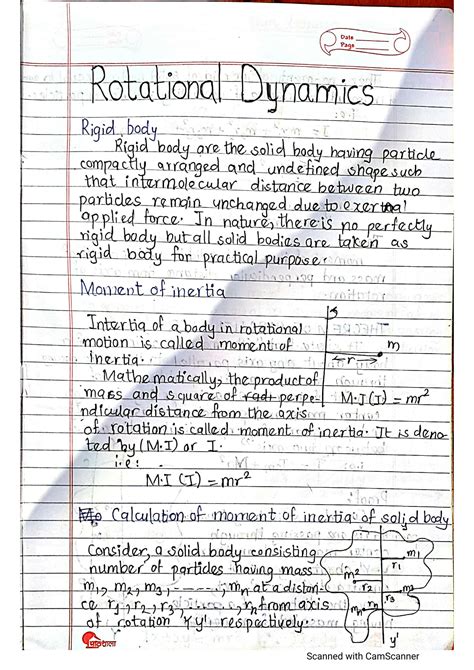 Date
Page
Rotational Dynamics
Rigid body
Rigid body are the solid body having particle
compactly arranged and undefined shape such
that intermolecular distance between two
particles remain unchanged due to exernal
applied force. In nature, there is no perfectly
rigid body but all solid bodies are taken as
rigid body for practical purpose.
Moment of inertia
Intertia of a body in rotational
motion is called moment of
inertia.
m
r
Mathematically, the product of
mass and square of perpe-
ndicular distance from the axis
M.I (I) = mr²
of rotation is called moment of inertia. It is deno
ted by (M.I) or I.
i.e:
M.I (I) = mr²
Calculation of moment of inertia of solid body
Consider, a solid body consisting
number of particles having mass
m₁, m₂, m₃, ------, mn at a distan-
ce r₁, r₂, r₃, rn from axis
of rotation YY' respectively.
y
m₁
r₁
m²
r₂
m₃
r₃
mn
rn
y'
Scanned with CamScanner